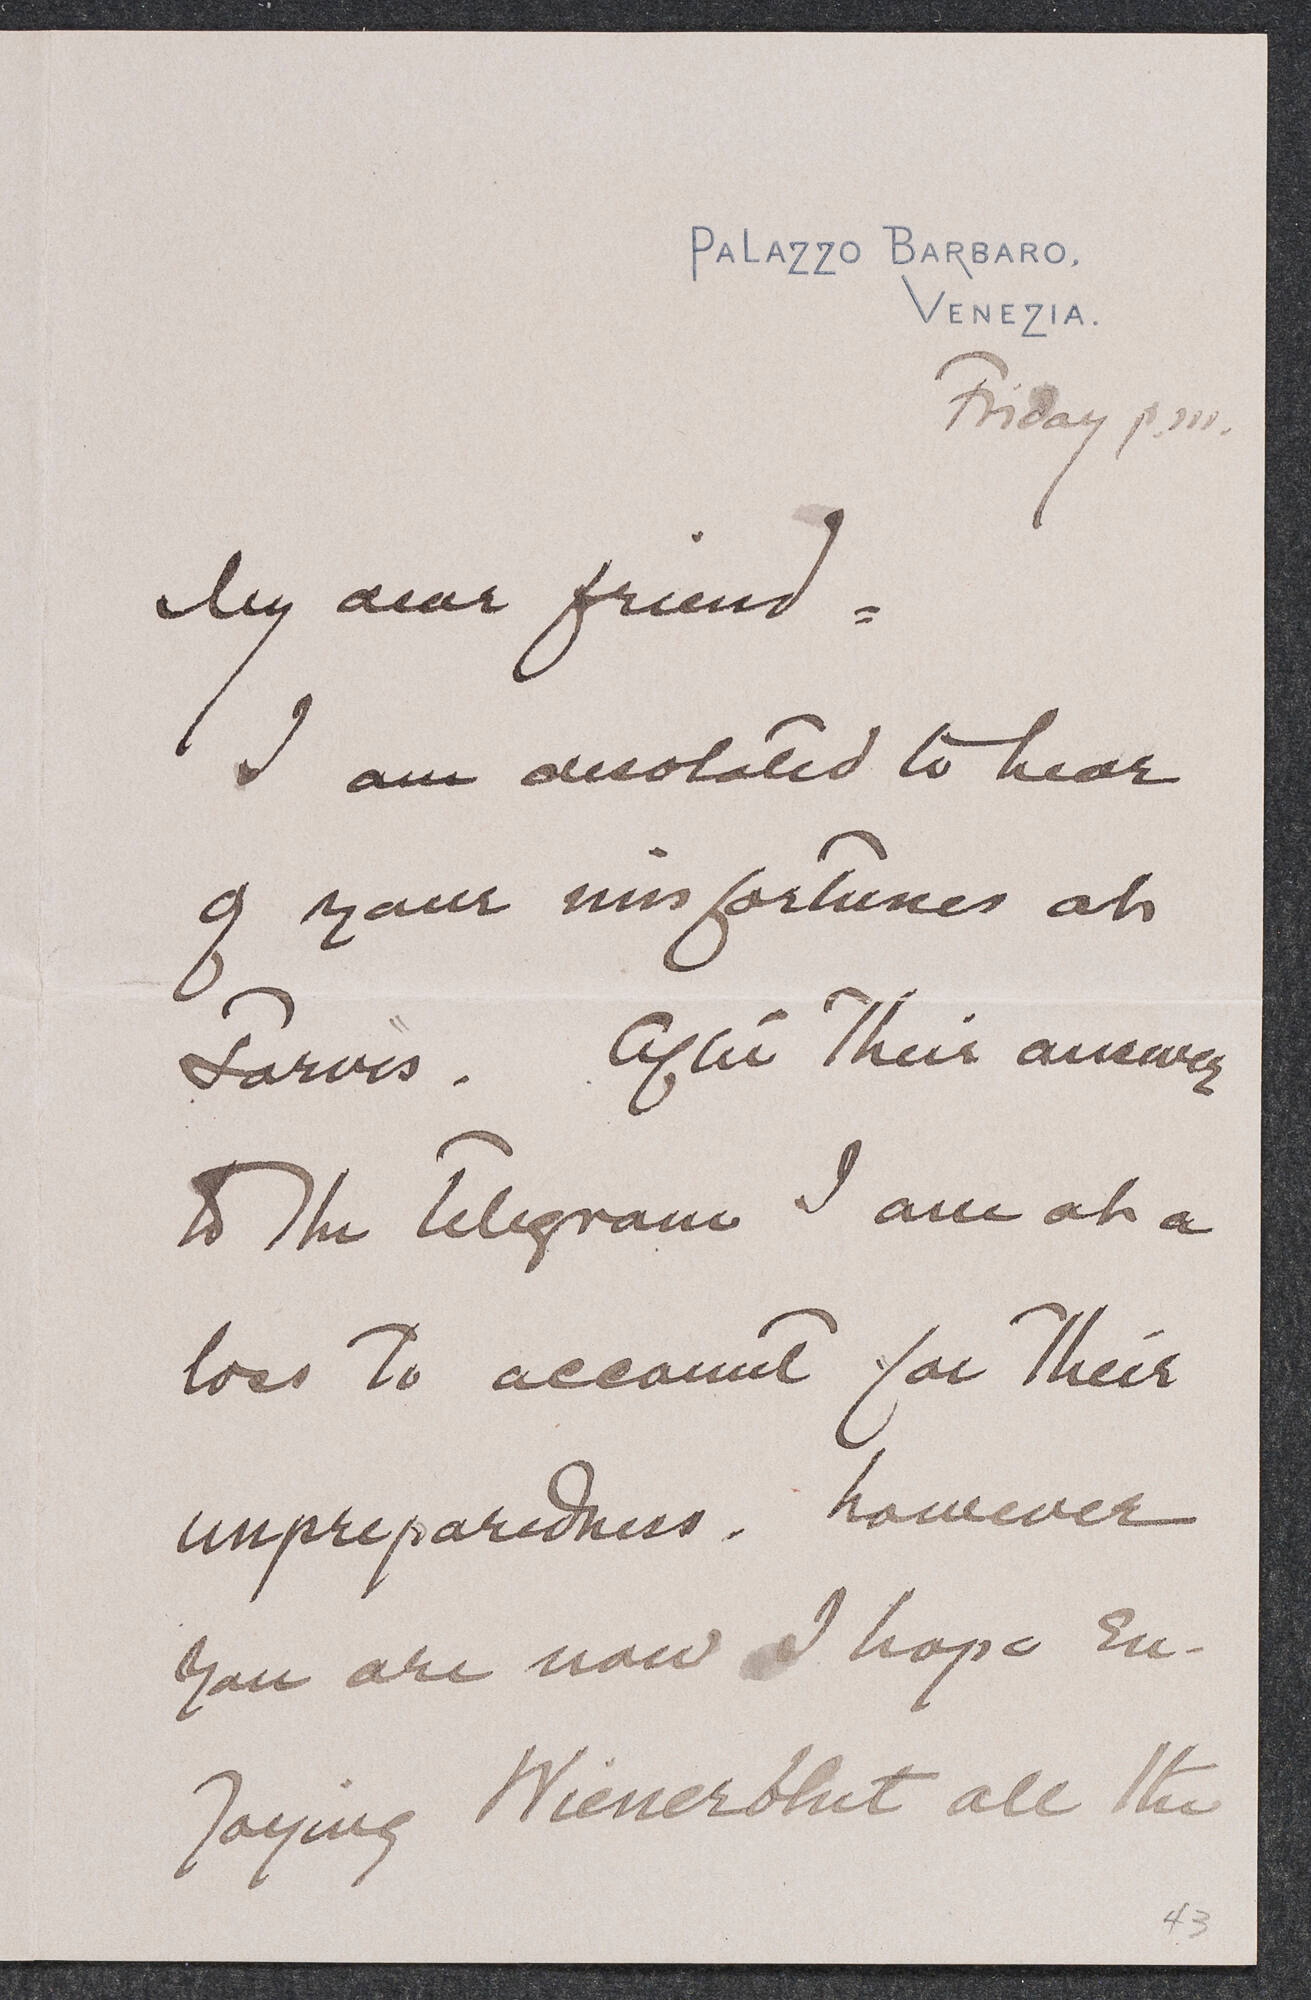 PALAZZO BARBARO,
VENEZIA.
Friday p.m.
My dear friend =
I am desolated to hear
of your misfortunes at
Tarvis. After their answer
to the telegram I am at a
loss to account for their
unpreparedness. however
you are now I hope en-
joying Wienerblut all the
43